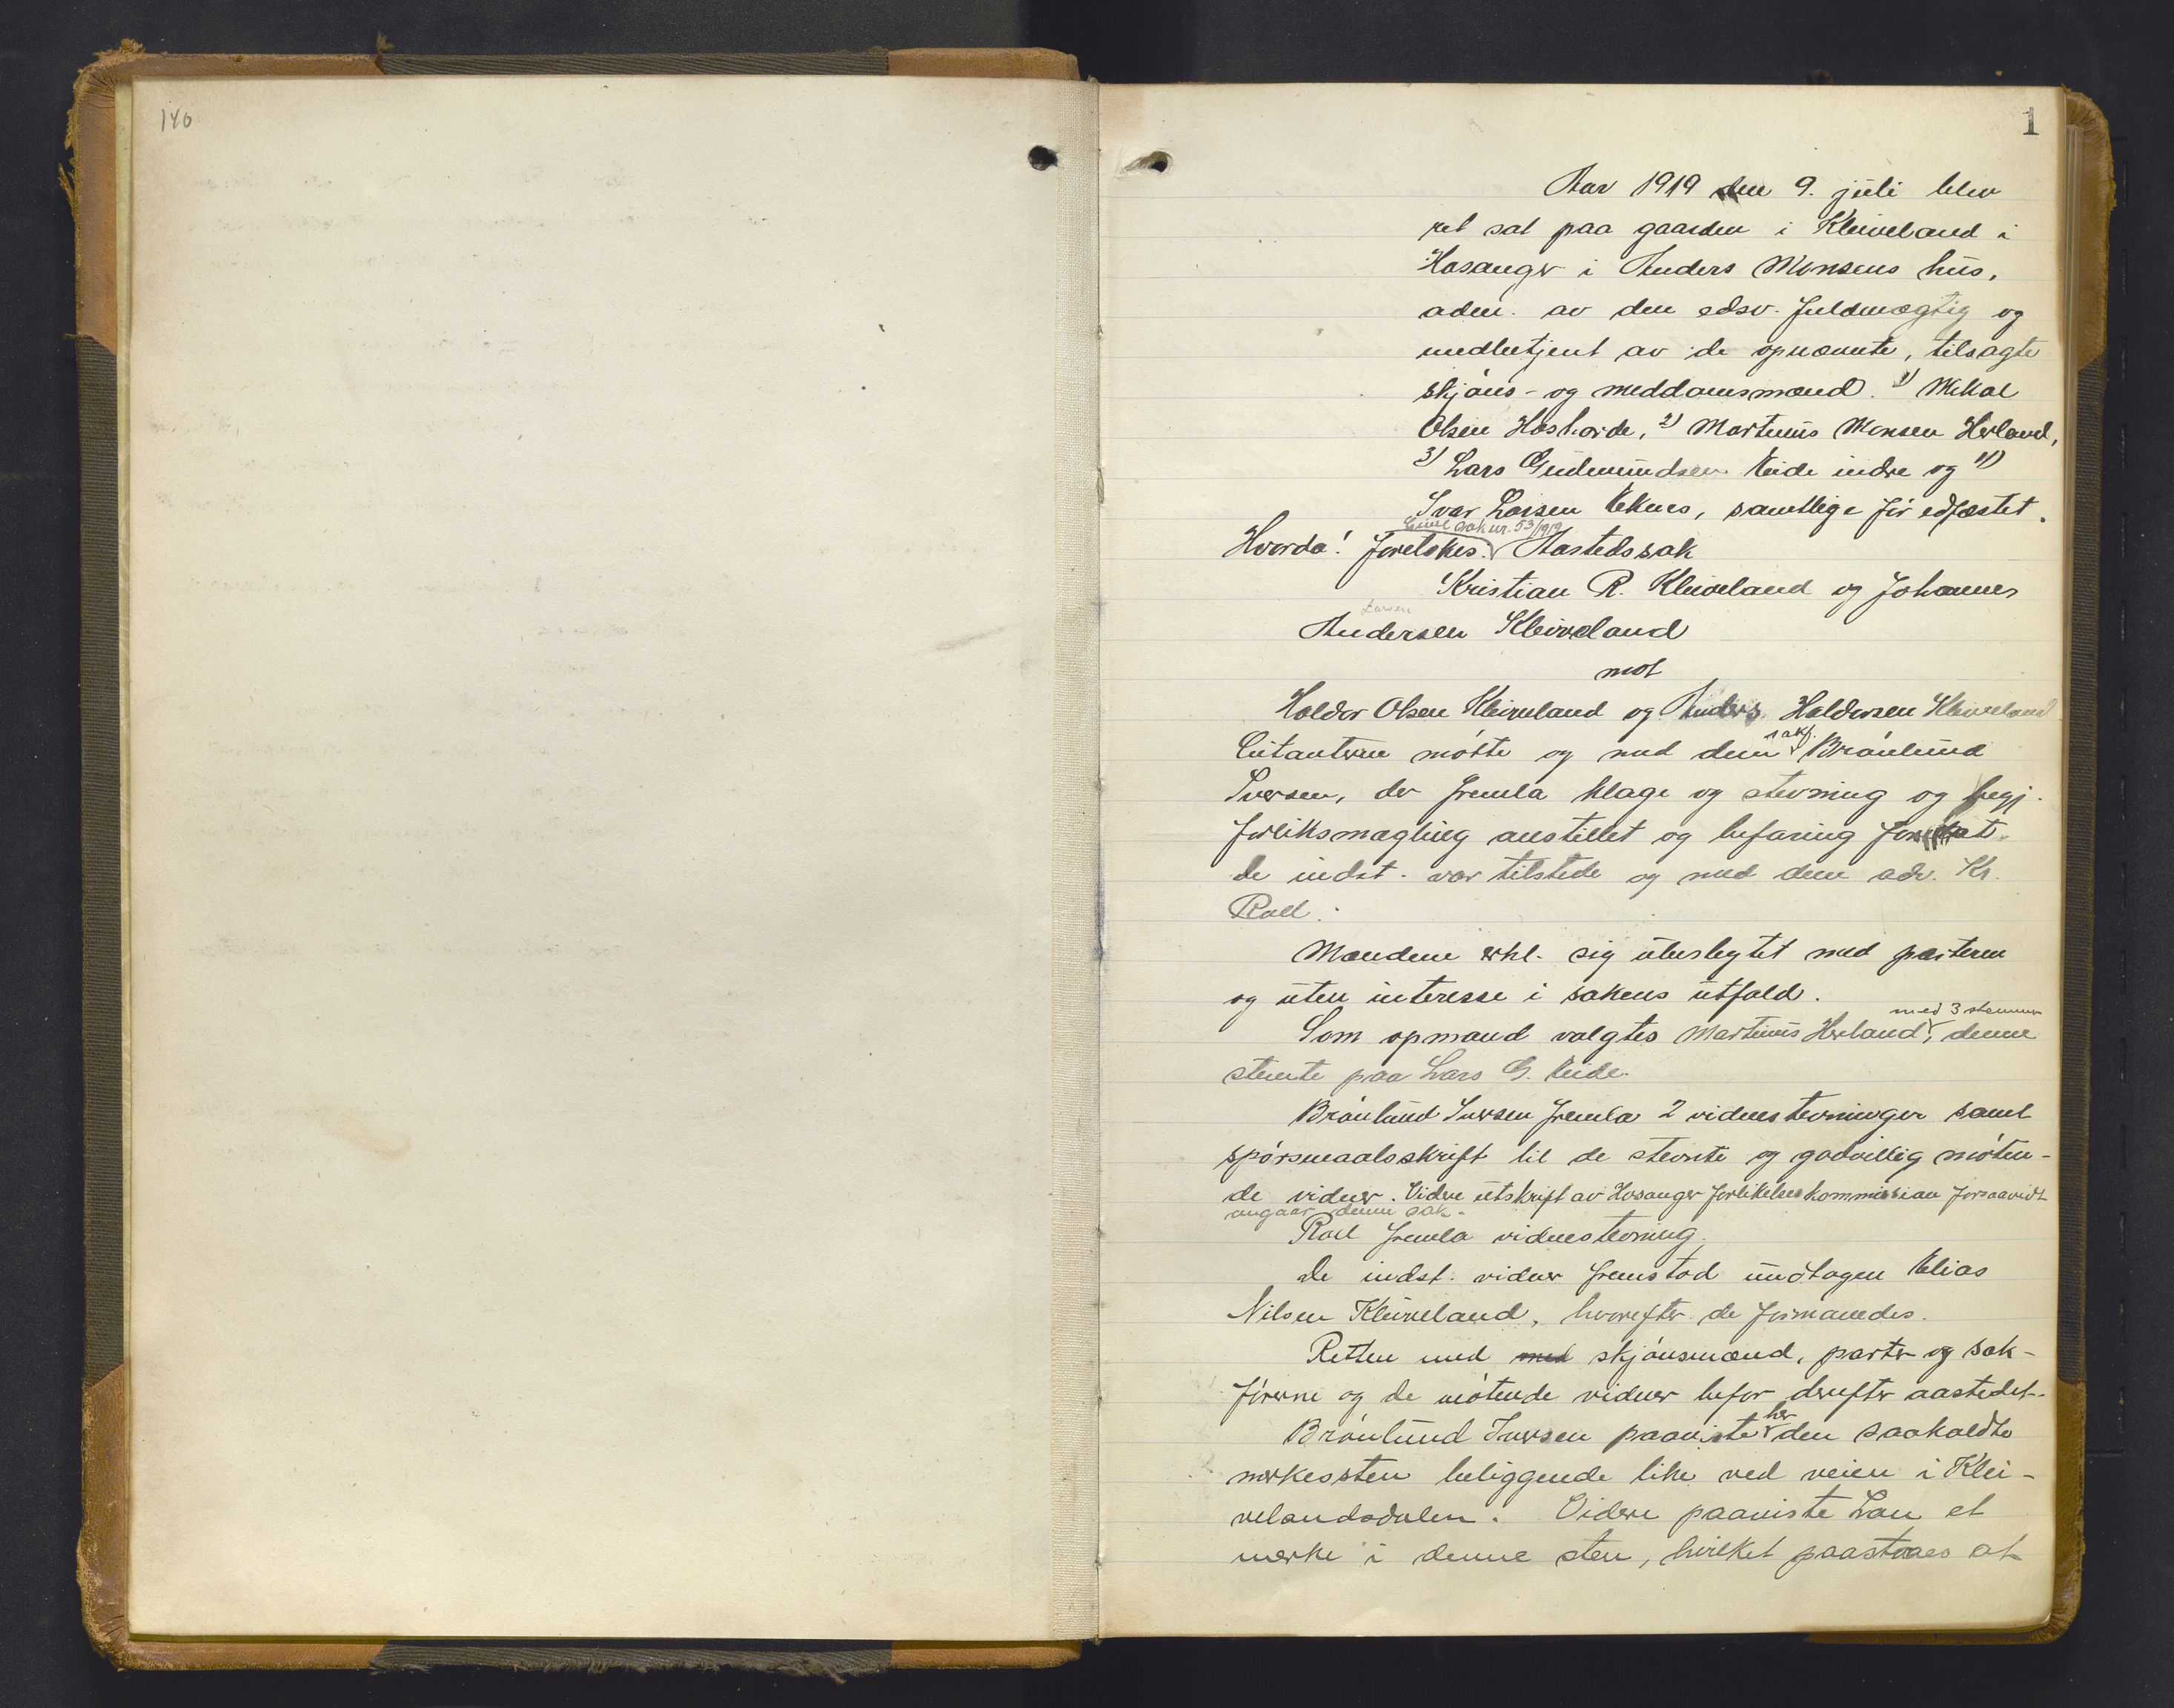 140
1
Aar 1919 den 9. juli blev
ret sat paa gaarden i Kleiveland i
Hosanger i Anders Monsens hus,
adm. av den edsv. fuldmægtig og
medbetjent av de opnævnte, tilsagte
skjøns- og meddomsmænd. 1) Mikal
Olsen 2) Martinus Monsen Herland,
3) Lars Gudmundsen Eide indre og 4)
Ivar Larsen Eknes, samtlige før edfæstet.
Civil sak nr. 53/1919
Hvorda! Foretokes: Aastedssak
Kristian R. Kleiveland og Johannes
Larsen
Andersen Kleiveland
mot
Haldor Olsen Kleiveland og Anders Haldorsen Kleiveland
sakf.
Citanterne møtte og med dem Brønlund
Iversen, der fremla klage og stevning og begj.
forliksmægling anstillet og befaring foretat.
De indst. var tilstede og med dem adv. Kr.
Roll.
Mændene erkl. sig ubeslegtet med parterne
og uten interesse i sakens utfald.
med 3 stemmer
Som opmand valgtes Martinus Herland, denne
stemte paa Lars G. Eide.
Brønlund Iversen fremla 2 vidnestevninger samt
spørsmaalsskrift til de stevnte og godvillig møten-
de vidner. Videre utskrift av Hosanger forlikelseskommission forsaavidt
angaar denne sak.
Roll fremla vidnestevning.
De indst. vidner fremstod undtagen Elias
Nilsen Kleiveland, hvorefter de formanedes.
Retten med med skjønsmænd, parter og sak-
førerne og de møtende vidner befor derefter aastedet.
her
Brønlund Iversen paaviste den saakaldte
merkessten beliggende like ved veien i Klei-
velandsdalen. Videre paaviste han et
merke i denne sten, hvilket paastaaes at